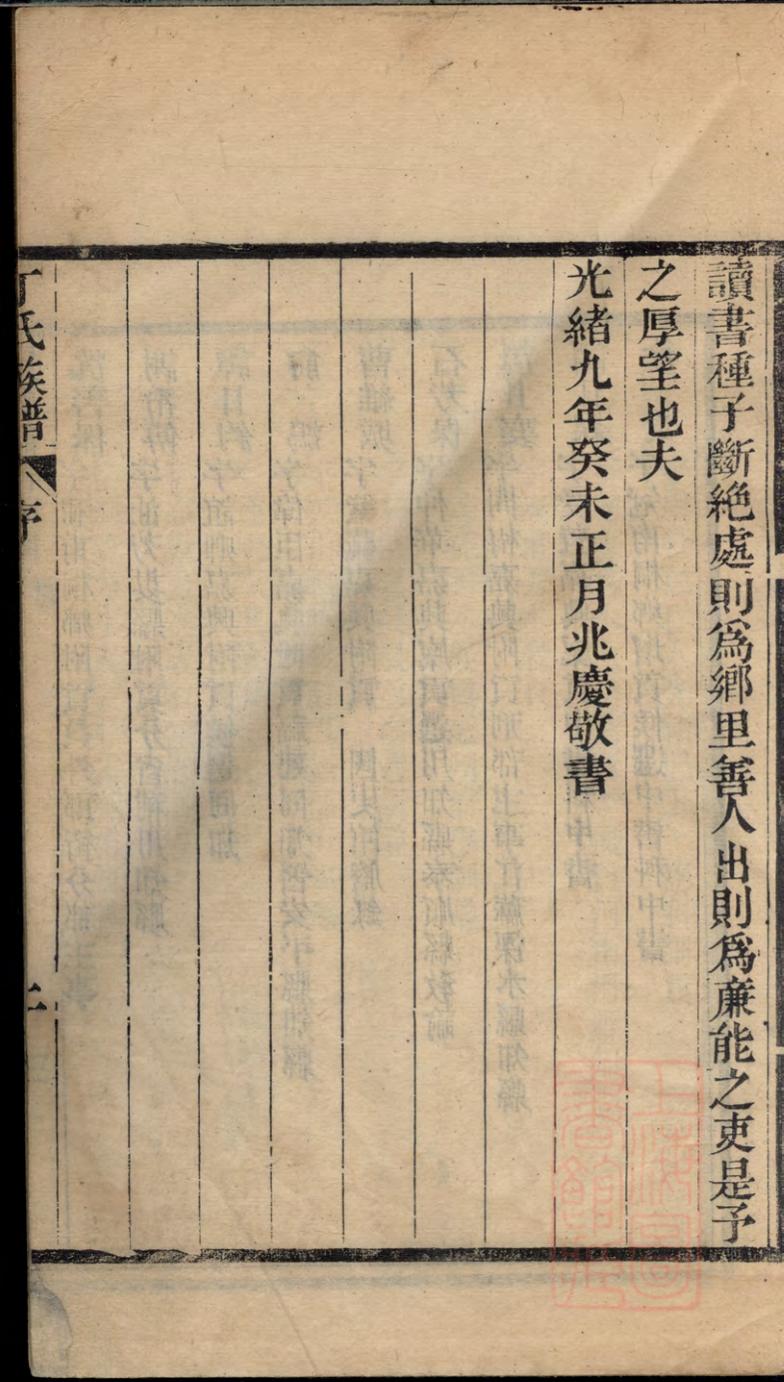 讀書種子斷絶處則爲鄉里善人出則爲廉能之吏是予
之厚望也夫
光緒九年癸未正月兆慶敬書
丁氏族譜
序
上海圖
書館藏